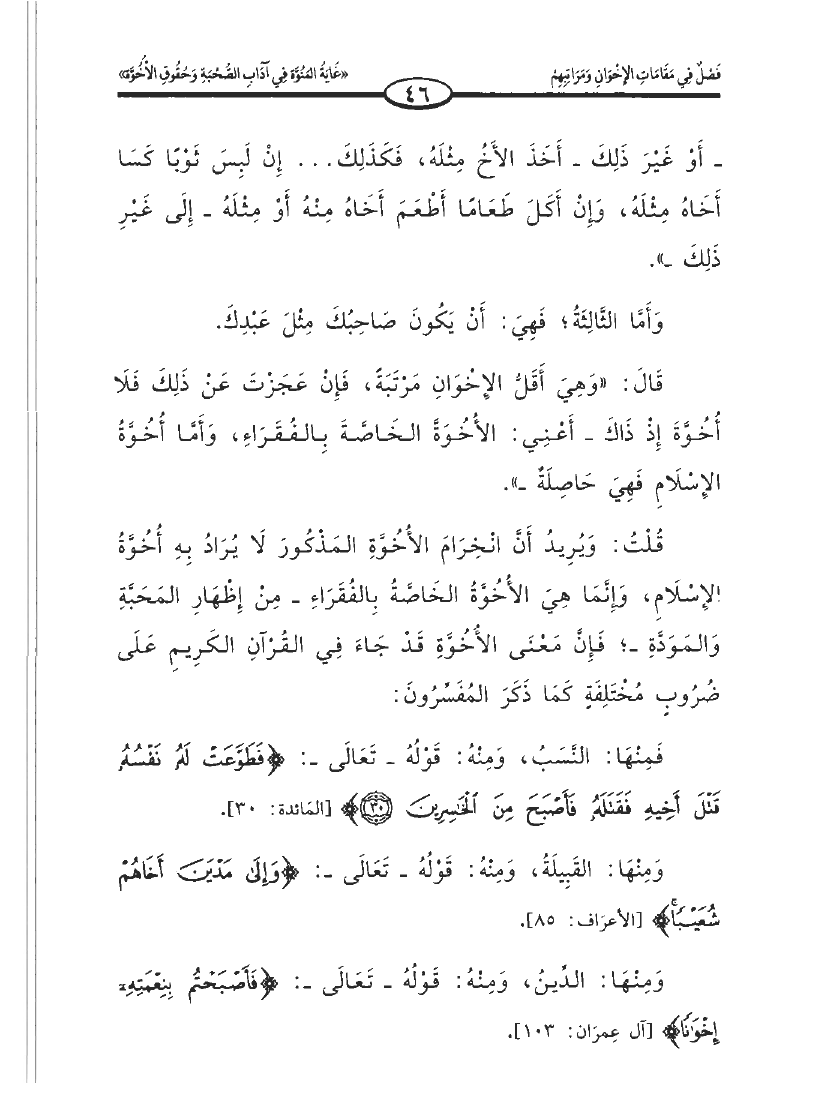 فَصْلٌ فِي مَقَامَاتِ الإِخْوَانِ وَمَرَاتِبِهِمْ
٤٦
«غَايَةُ المُنُوَّة فِي آدَابِ الصُّحْبَةِ وَحُقُوقِ الأُخُوَّة»
ـ أَوْ غَيْرَ ذَلِكَ ـ أَخَذَ الأَخُ مِثْلَهُ، فَكَذَلِكَ... إِنْ لَبِسَ ثَوْبًا كَسَا
أَخَاهُ مِثْلَهُ، وَإِنْ أَكَلَ طَعَامًا أَطْعَمَ أَخَاهُ مِنْهُ أَوْ مِثْلَهُ ـ إِلَى غَيْرِ
ذَلِكَ ـ».
وَأَمَّا الثَّالِثَةُ؛ فَهِيَ: أَنْ يَكُونَ صَاحِبُكَ مِثْلَ عَبْدِكَ.
قَالَ: «وَهِيَ أَقَلُّ الإِخْوَانِ مَرْتَبَةً، فَإِنْ عَجَزْتَ عَنْ ذَلِكَ فَلَا
أُخُوَّةَ إِذْ ذَاكَ ـ أَعْنِي: الأُخُوَةَّ الخَاصَّةَ بِالفُقَرَاءِ، وَأَمَّا أُخُوَّةُ
الإِسْلَامِ فَهِيَ حَاصِلَةٌ ـ».
قُلْتُ: وَيُرِيدُ أَنَّ انْخِرَامَ الأُخُوَّةِ المَذْكُورَ لَا يُرَادُ بِهِ أُخُوَّةُ
الإِسْلَامِ، وَإِنَّمَا هِيَ الأُخُوَّةُ الخَاصَّةُ بِالفُقَرَاءِ ـ مِنْ إِظْهَارِ المَحَبَّةِ
وَالمَوَدَّةِ ـ؛ فَإِنَّ مَعْنَى الأُخُوَّةِ قَدْ جَاءَ فِي القُرْآنِ الكَرِيمِ عَلَى
ضُرُوبٍ مُخْتَلِفَةٍ كَمَا ذَكَرَ المُفَسِّرُونَ:
فَمِنْهَا: النَّسَبُ، وَمِنْهُ: قَوْلُهُ ـ تَعَالَى ـ: ﴿فَطَوَّعَتْ لَهُۥ نَفْسُهُۥ
قَتْلَ أَخِيهِ فَقَتَلَهُۥ فَأَصْبَحَ مِنَ ٱلْخَٰسِرِينَ ۝٣٠﴾ [المَائدة: ٣٠].
وَمِنْهَا: القَبِيلَةُ، وَمِنْهُ: قَوْلُهُ ـ تَعَالَى ـ: ﴿وَإِلَىٰ مَدْيَنَ أَخَاهُمْ
شُعَيْبًاۚ﴾ [الأعرَاف: ٨٥].
وَمِنْهَا: الدِّينُ، وَمِنْهُ: قَوْلُهُ ـ تَعَالَى ـ: ﴿فَأَصْبَحْتُم بِنِعْمَتِهِۦٓ
إِخْوَٰنًا﴾ [آل عِمرَان: ١٠٣].